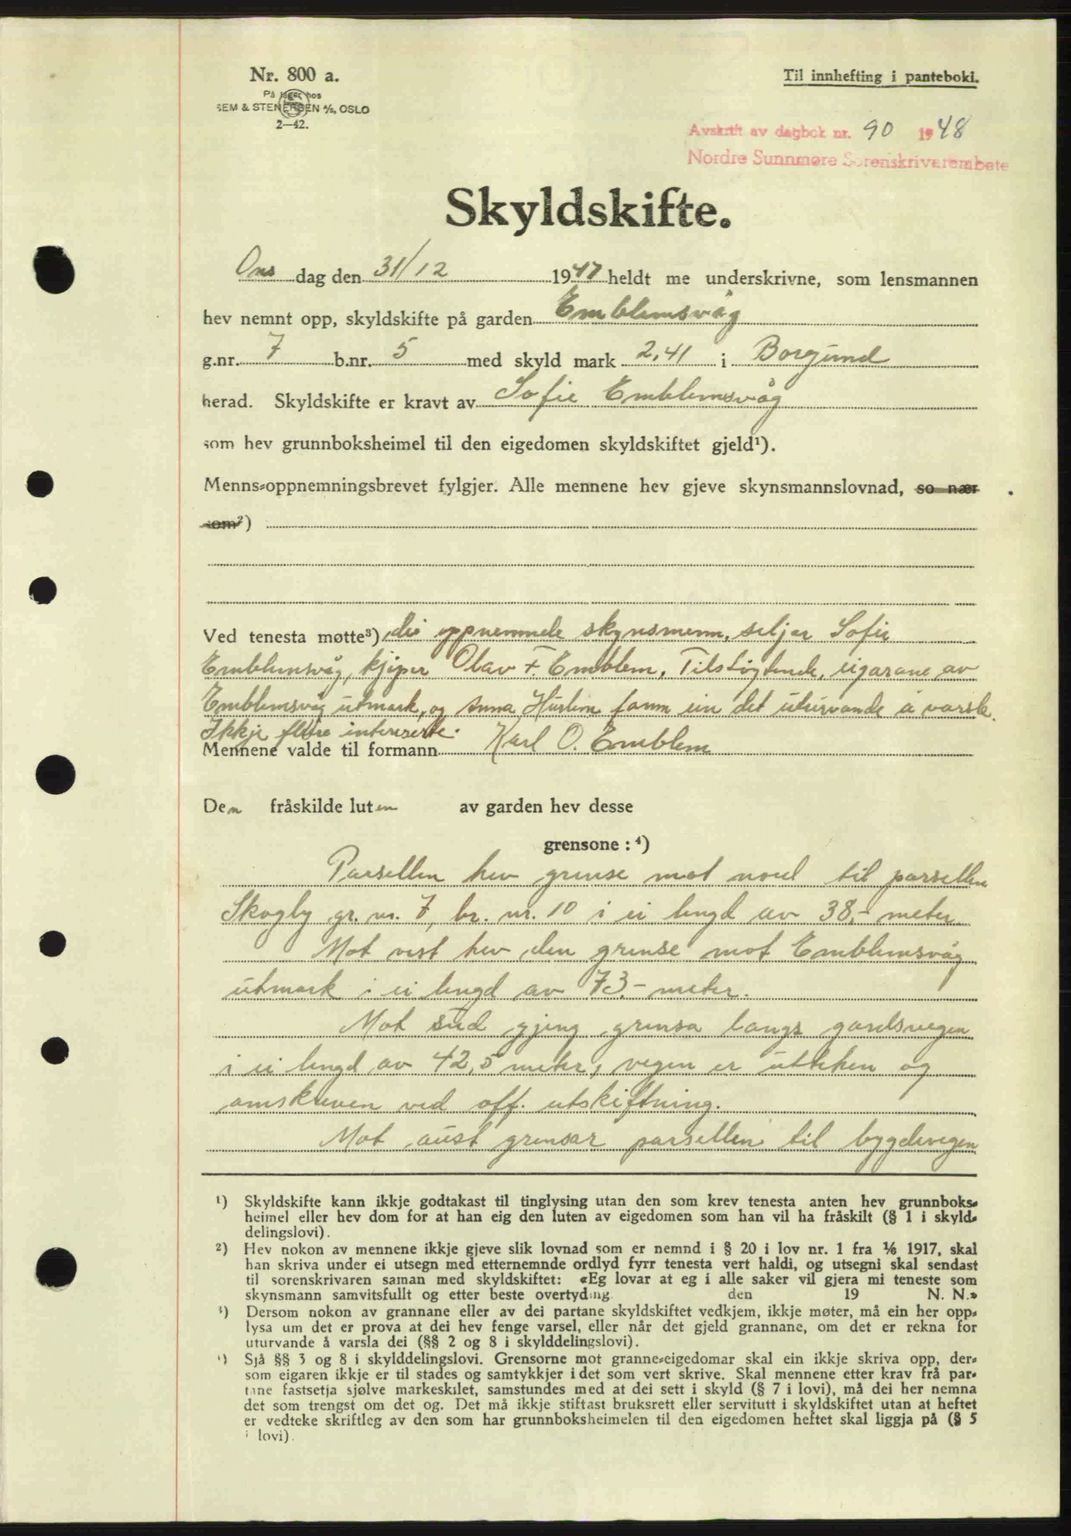 Nr. 800 a.
På lager hos
SEM & STENERSEN A/S, OSLO
2—42.
Til innhefting i panteboki.
Avskrift av dagbok nr. 90 1948
Nordre Sunnmøre Sorenskrivarembete
Skyldskifte.
Ons dag den 31/12 1947 heldt me underskrivne, som lensmannen
hev nemnt opp, skyldskifte på garden Emblemsvåg
g.nr. 7 b.nr. 5 med skyld mark 2,41 i Borgund
herad. Skyldskifte er kravt av Sofie Emblemsvåg
som hev grunnboksheimel til den eigedomen skyldskiftet gjeld¹).
Menns-oppnemningsbrevet fylgjer. Alle mennene hev gjeve skynsmannslovnad, so nær
som²)
Ved tenesta møtte³) dei oppnemnde skynsmenn, seljar Sofie
Emblemsvåg, kjøper Olav F. Emblem. Tilstøytende eigarane av
Emblemsvåg utmark, og Anna Huslem fann ein det uturvande å varsle.
Ikkje fleire interesserte.
Mennene valde til formann Karl O. Emblem
Den fråskilde luten av garden hev desse
grensone : ⁴)
Parsellen hev grense mot nord til parsellen
Skogby gr. nr. 7, br. nr. 10 i ei lengd av 38,- meter.
Mot vest hev den grense mot Emblemsvåg
utmark i ei lengd av 73,- meter.
Mot sud gjeng grensa langs gardsvegen
i ei lengd av 42,5 meter, vegen er utstukken og
omskreven ved off. utskiftning.
Mot aust grensar parsellen til bygdevegen
¹) Skyldskifte kann ikkje godtakast til tinglysing utan den som krev tenesta anten hev grunnboks-
heimel eller hev dom for at han eig den luten av eigedomen som han vil ha fråskilt (§ 1 i skyld-
delingslovi).
²) Hev nokon av mennene ikkje gjeve slik lovnad som er nemnd i § 20 i lov nr. 1 fra ⅙ 1917, skal
han skriva under ei utsegn med etternemnde ordlyd fyrr tenesta vert haldi, og utsegni skal sendast
til sorenskrivaren saman med skyldskiftet: «Eg lovar at eg i alle saker vil gjera mi teneste som
skynsmann samvitsfullt og etter beste overtyding. den 19 N. N.»
³) Dersom nokon av grannane eller av dei partane skyldskiftet vedkjem, ikkje møter, må ein her opp-
lysa um det er prova at dei hev fenge varsel, eller når det gjeld grannane, om det er rekna for
uturvande å varsla dei (§§ 2 og 8 i skylddelingslovi).
⁴) Sjå §§ 3 og 8 i skylddelingslovi. Grensorne mot granne-eigedomar skal ein ikkje skriva opp, der-
som eigaren ikkje er til stades og samtykkjer i det som vert skrive. Skal mennene etter krav frå par-
tane fastsetja sjølve markeskilet, samstundes med at dei sett i skyld (§ 7 i lovi), må dei her nemna
det som trengst om det og. Det må ikkje stiftast bruksrett eller servitutt i skyldskiftet utan at heftet
er vedteke skriftleg av den som har grunnboksheimelen til den eigedomen heftet skal liggja på (§ 5
i lovi).